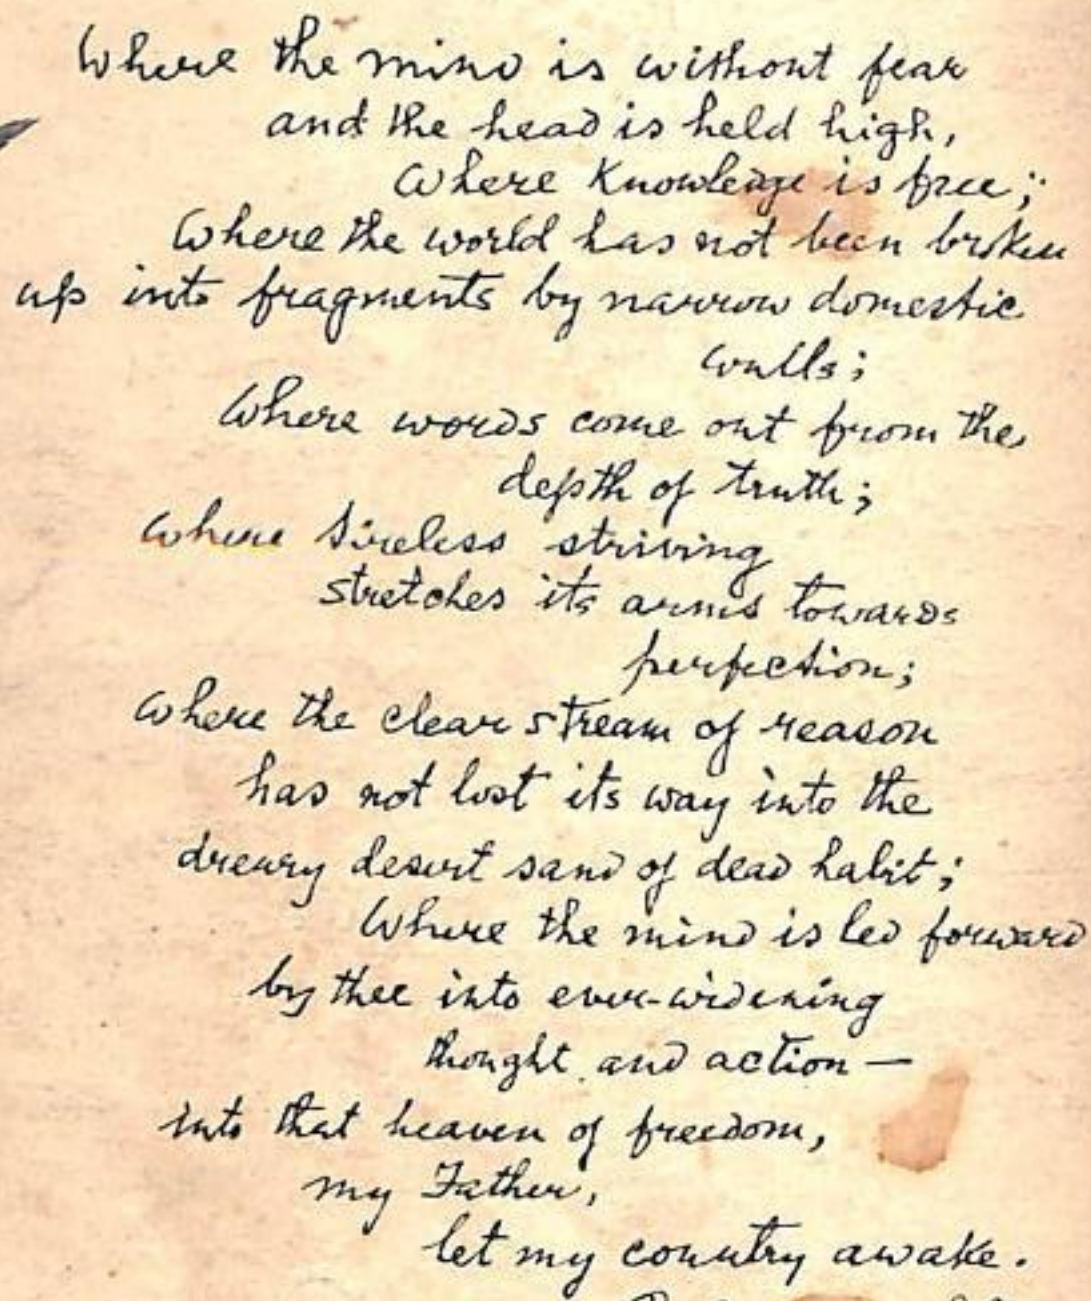 Where the mind is without fear
and the head is held high,
Where knowledge is free;
Where the world has not been broken
up into fragments by narrow domestic
walls;
Where words come out from the
depth of truth;
Where tireless striving
stretches its arms towards
perfection;
Where the clear stream of reason
has not lost its way into the
dreary desert sand of dead habit;
Where the mind is led forward
by thee into ever-widening
thought and action —
into that heaven of freedom,
my Father,
let my country awake.